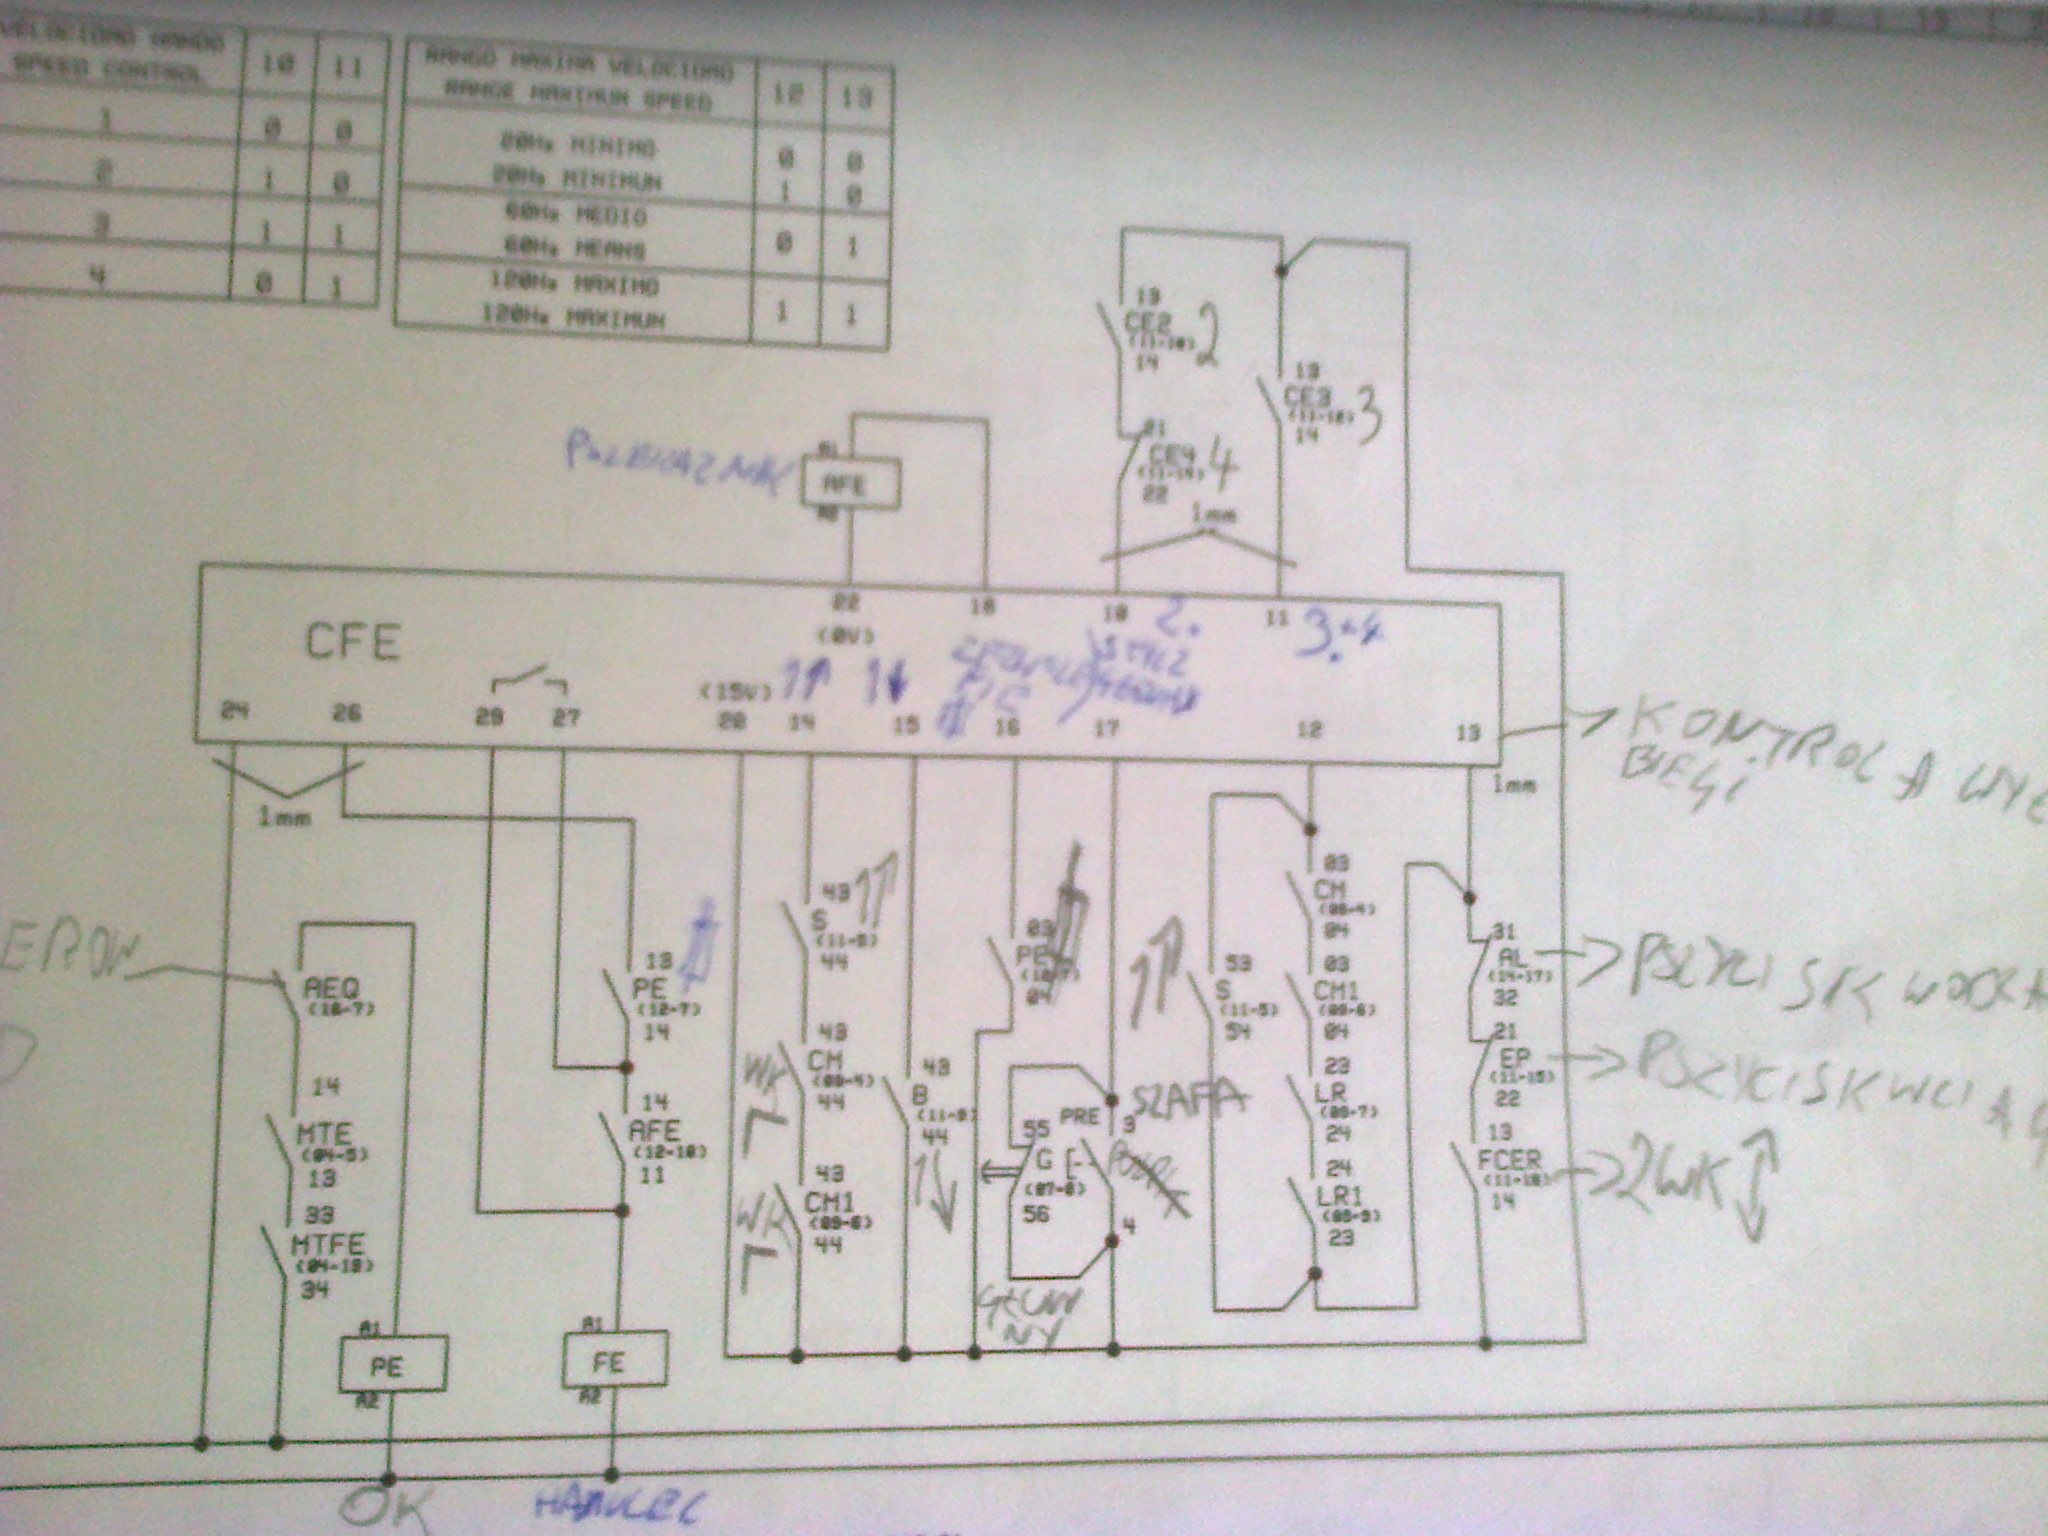 VELOCIDAD MANDO
SPEED CONTROL
10
11
1
0
0
2
1
0
3
1
1
4
0
1
RANGO MAXIMA VELOCIDAD
RANGE MAXIMUN SPEED
12
13
20Hz MINIMO
0
0
20Hz MINIMUN
1
0
60Hz MEDIO
60Hz MEANS
0
1
120Hz MAXIMO
120Hz MAXIMUN
1
1
13
CE2
(11-10)
14
2
13
CE3
(11-12)
14
3
21
CE4
(11-14)
22
4
1mm
A1
AFE
A2
CFE
22
(0V)
18
10
2.
11
3.+4
24
26
29
27
(15V)
20
14
15
16
17
12
13
KONTROLA
BIEGI
1mm
1mm
EROW
AEQ
(10-7)
14
MTE
(04-5)
13
33
MTFE
(04-18)
34
A1
PE
A2
OK
13
PE
(12-7)
14
14
AFE
(12-10)
11
A1
FE
A2
HAMULEC
43
S
(11-5)
44
WK
43
CM
(08-4)
44
WK
43
CM1
(09-6)
44
43
B
(11-8)
44
03
PE
(12-7)
04
55
G
(07-8)
56
PRE
3
4
SZAFA
53
S
(11-5)
54
03
CM
(08-4)
04
03
CM1
(09-6)
04
23
LR
(08-7)
24
24
LR1
(08-9)
23
31
AL
(14-17)
32
21
EP
(11-15)
22
13
FCER
(11-18)
14
2WK